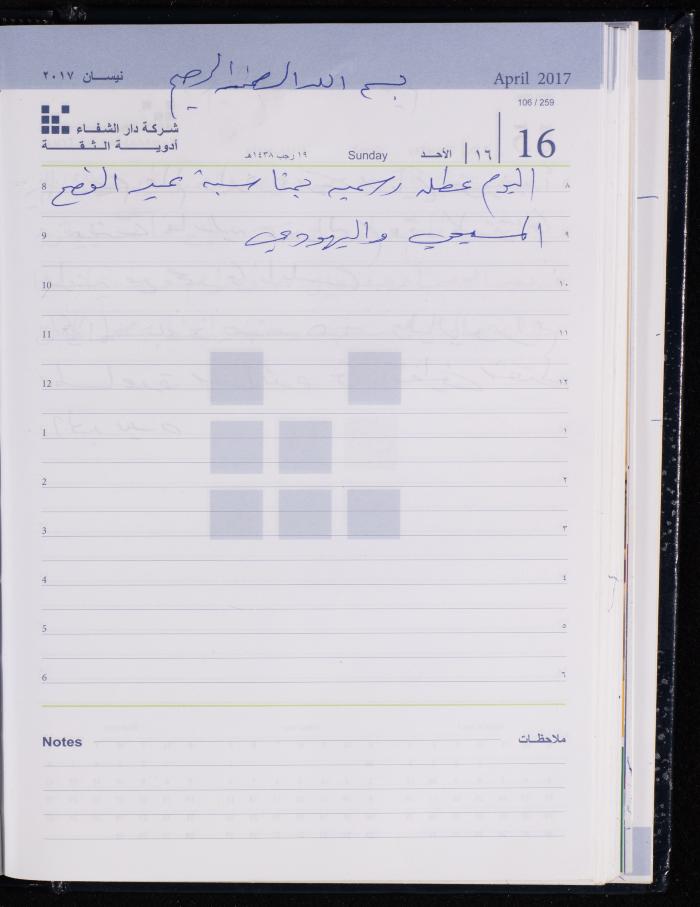 نيسان ٢٠١٧
بسم الله الرحمن الرحيم
April 2017
106 / 259
شركة دار الشفاء
أدوية الثقة
١٩ رجب ١٤٣٨هـ
Sunday
الأحد
١٦
16
8 اليوم عطله رسميه بمناسبة عيد الفصح ٨
9 المسيحي واليهودي ٩
10 ١٠
11 ١١
12 ١٢
1 ١
2 ٢
3 ٣
4 ٤
5 ٥
6 ٦
Notes
ملاحظات